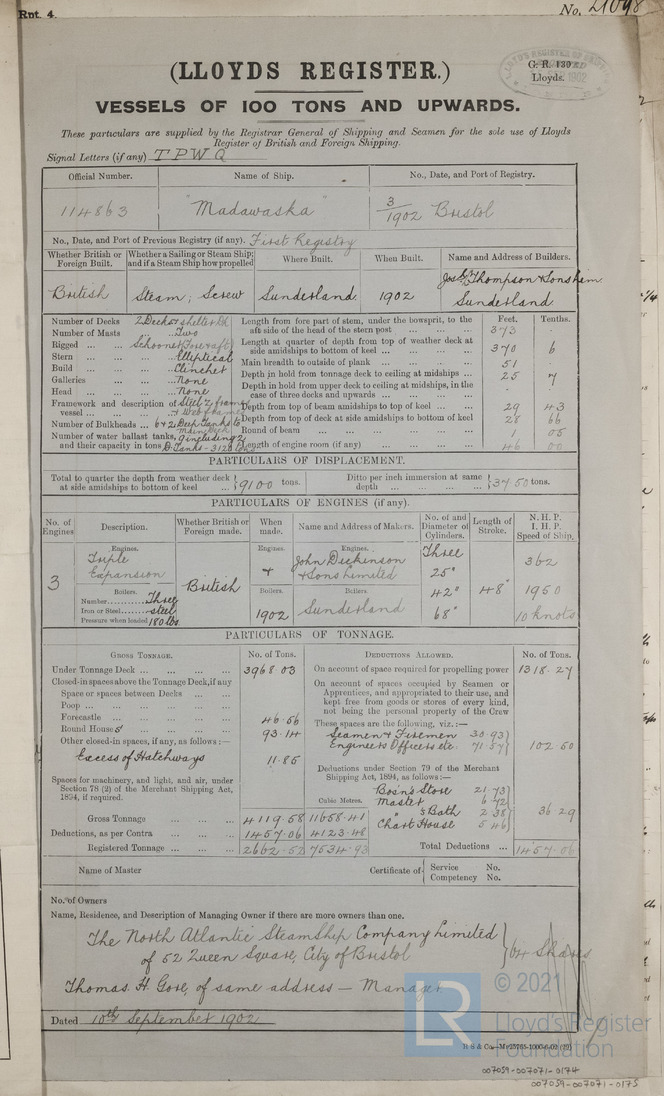 Rpt. 4.
No. 21098
(LLOYDS REGISTER.)
G. R. 130
Lloyds.
VESSELS OF 100 TONS AND UPWARDS.
These particulars are supplied by the Registrar General of Shipping and Seamen for the sole use of Lloyds
Register of British and Foreign Shipping.
Signal Letters (if any) TPWQ
Official Number. Name of Ship. No., Date, and Port of Registry.
114863 "Madawaska" 3/1902 Bristol
No., Date, and Port of Previous Registry (if any). First Registry
Whether British or Foreign Built. Whether a Sailing or Steam Ship; and if a Steam Ship how propelled Where Built. When Built. Name and Address of Builders.
British Steam; Screw Sunderland 1902 Jos. L. Thompson & Sons Lim Sunderland
Number of Decks 2 Decks & shelter Dk
Number of Masts ... Two
Rigged ... Schooner (Fore & aft)
Stern ... Elliptical
Build ... Clincher
Galleries ... None
Head ... None
Framework and description of vessel ... Steel Z frames & Web frames
Number of Bulkheads ... 6 & 2 Deep Tanks to Main Deck
Number of water ballast tanks, and their capacity in tons 9 including 2 D. Tanks - 3120 tons
Feet. Tenths.
Length from fore part of stem, under the bowsprit, to the aft side of the head of the stern post 373 -
Length at quarter of depth from top of weather deck at side amidships to bottom of keel ... 370 6
Main breadth to outside of plank ... 51 -
Depth in hold from tonnage deck to ceiling at midships ... 25 7
Depth in hold from upper deck to ceiling at midships, in the case of three decks and upwards ... -
Depth from top of beam amidships to top of keel ... 29 43
Depth from top of deck at side amidships to bottom of keel 28 66
Round of beam ... 1 05
Length of engine room (if any) ... 46 00
PARTICULARS OF DISPLACEMENT.
Total to quarter the depth from weather deck at side amidships to bottom of keel ... 9100 tons. Ditto per inch immersion at same depth ... 37.50 tons.
PARTICULARS OF ENGINES (if any).
No. of Engines Description. Whether British or Foreign made. When made. Name and Address of Makers. No. of and Diameter of Cylinders. Length of Stroke. N. H. P. I. H. P. Speed of Ship.
Engines. Engines. Engines.
3 Triple Expansion British John Dickinson & Sons Limited Three 25" 42" 68" 48" 362 1950 10 knots
Boilers. Boilers. Boilers.
Number Three
Iron or Steel steel
Pressure when loaded 180 lbs.
1902 Sunderland
PARTICULARS OF TONNAGE.
GROSS TONNAGE. No. of Tons. DEDUCTIONS ALLOWED. No. of Tons.
Under Tonnage Deck ... 3968.03
Closed-in spaces above the Tonnage Deck, if any
Space or spaces between Decks ...
Poop ...
Forecastle ... 46.56
Round Houses ... 93.14
Other closed-in spaces, if any, as follows :—
Excess of Hatchways 11.85
Spaces for machinery, and light, and air, under Section 78 (2) of the Merchant Shipping Act, 1894, if required.
Cubic Metres.
Gross Tonnage ... 4119.58 11658.41
Deductions, as per Contra ... 1457.06 4123.48
Registered Tonnage ... 2662.52 7534.93
On account of space required for propelling power 1318.27
On account of spaces occupied by Seamen or Apprentices, and appropriated to their use, and kept free from goods or stores of every kind, not being the personal property of the Crew
These spaces are the following, viz. :—
Seamen & Firemen 30.93
Engineers Officers etc. 71.57 102.50
Deductions under Section 79 of the Merchant Shipping Act, 1894, as follows :—
Bosn's Store 21.73
Master 6.72
" s Bath 2.38
Chart House 5.46 36.29
Total Deductions ... 1457.06
Name of Master Certificate of Service No. Competency No.
No. of Owners
Name, Residence, and Description of Managing Owner if there are more owners than one.
The North Atlantic SteamShip Company Limited
of 52 Queen Square, City of Bristol 64 Shares
Thomas. H. Gore, of same address — Manager
Dated 10th September 1902
© 2021
LR
Lloyd's Register
Foundation
007059-007071-0174
007059-007071-0175